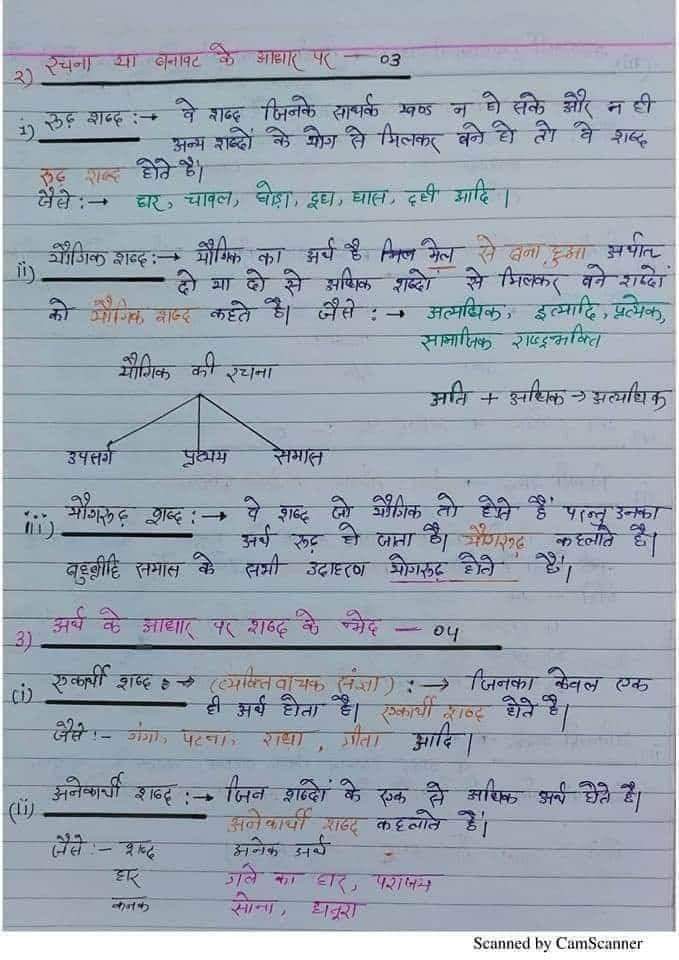 २) रचना या बनावट के आधार पर — 03
i) रूढ़ शब्द :→ वे शब्द जिनके सार्थक खण्ड न हो सके और न ही
अन्य शब्दों के योग से मिलकर बने हो तो वे शब्द
रूढ़ शब्द होते हैं।
जैसे :→ घर, चावल, घोड़ा, दूध, घास, दही आदि।
ii) यौगिक शब्द :→ यौगिक का अर्थ है मेल से बना हुआ अर्थात
दो या दो से अधिक शब्दों से मिलकर बने शब्दों
को यौगिक शब्द कहते है। जैसे :→ अत्यधिक, इत्यादि, प्रत्येक,
सामाजिक राष्ट्रभक्ति
यौगिक की रचना
अति + अधिक → अत्यधिक
उपसर्ग प्रत्यय समास
iii) योगरूढ़ शब्द :→ वे शब्द जो यौगिक तो होते हैं परन्तु उनका
अर्थ रूढ़ हो जाता है। योगरूढ़ कहलाते हैं।
बहुव्रीहि समास के सभी उदाहरण योगरूढ़ होते हैं।
3) अर्थ के आधार पर शब्द के भेद — 04
(i) एकार्थी शब्द :→ (व्यक्तिवाचक संज्ञा) :→ जिनका केवल एक
ही अर्थ होता है। एकार्थी शब्द होते है।
जैसे :- गंगा, पटना, राधा, गीता आदि।
(ii) अनेकार्थी शब्द :→ जिन शब्दों के एक से अधिक अर्थ होते है।
अनेकार्थी शब्द कहलाते हैं।
जैसे :- शब्द अनेक अर्थ
हार गले का हार, पराजय
कनक सोना, धतूरा
Scanned by CamScanner